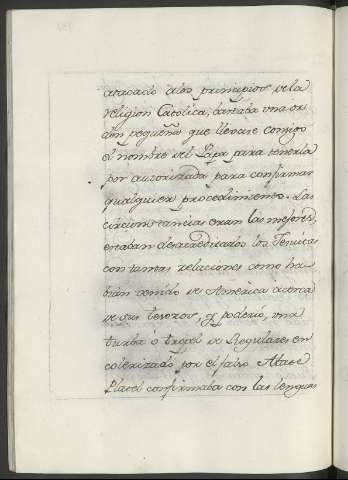 atacado álos principios dela
religion Catolica, bastaba una or
den pequeña que llevase consigo
el nombre del Papa para tenerla
por autorizada para confirmar
qualquier procedimiento. Las
circunstancias eran las mejores,
estaban desacreditados los Jesuitas
con tantas relaciones como ha
bian venido de America acerca
de sus tesoros, y poderio, una
turba ó tropel de Regulares en
colerizado por el falso Abate
Platel confirmaba con las lenguas